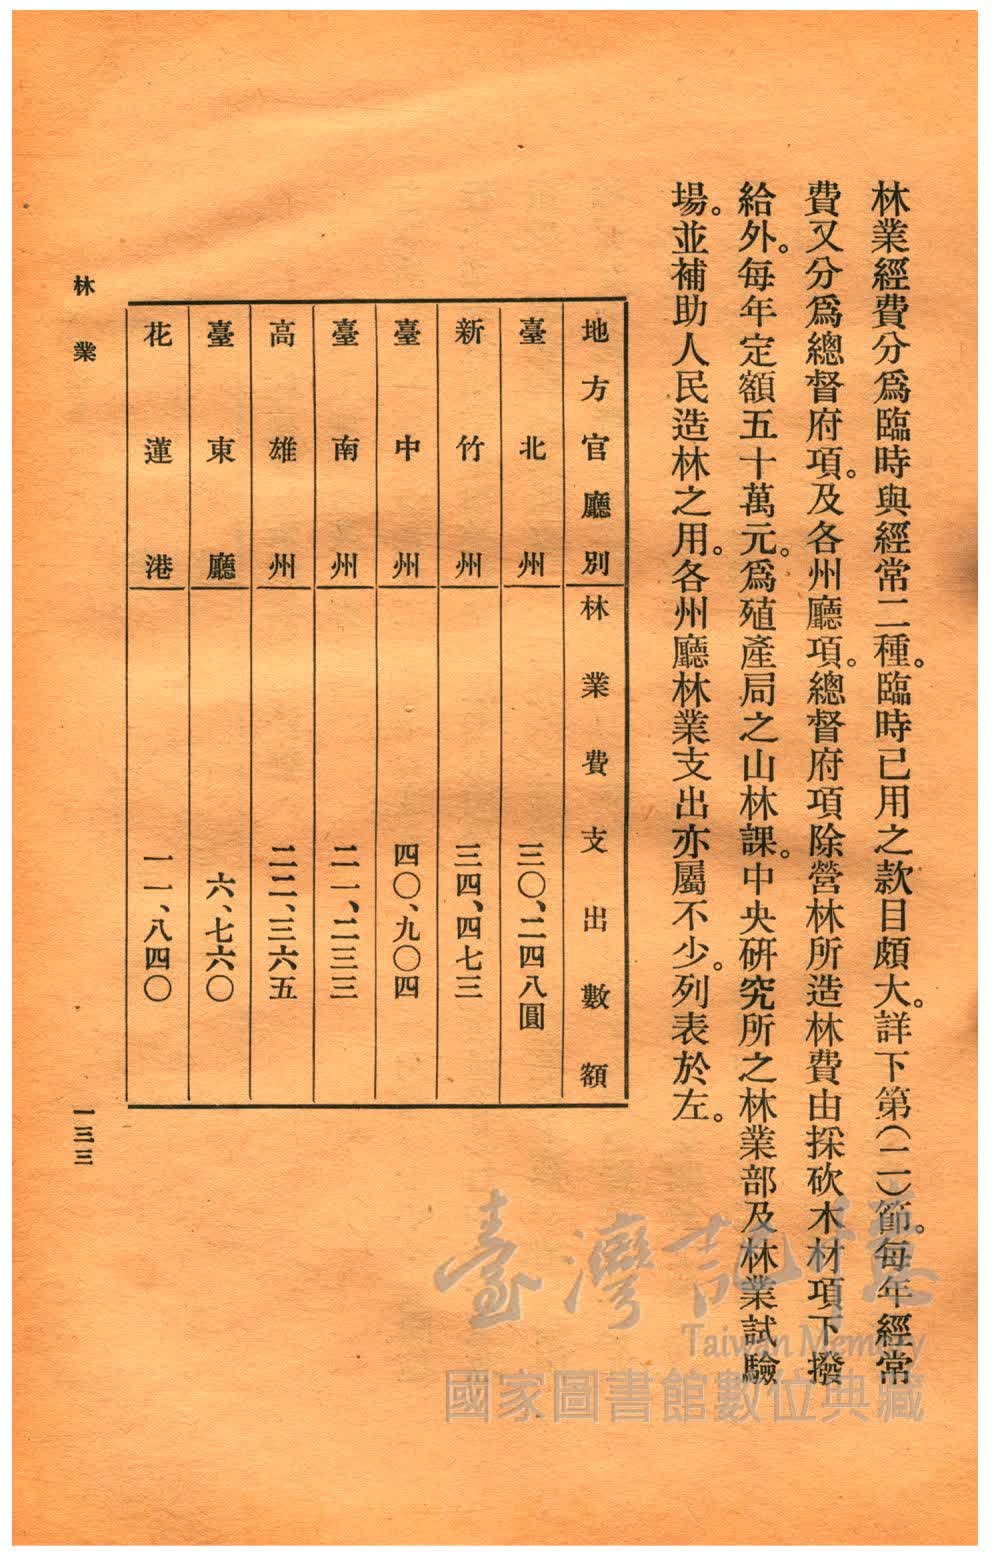 林業經費分爲臨時與經常二種。臨時已用之款目頗大。詳下第(二)節。每年經常
費又分爲總督府項。及各州廳項。總督府項除營林所造林費由採砍木材項下撥
給外。每年定額五十萬元。爲殖產局之山林課。中央硏究所之林業部及林業試驗
場。並補助人民造林之用。各州廳林業支出亦屬不少。列表於左。
地方官廳別 林業費支出數額
臺北州 三〇、二四八圓
新竹州 三四、四七三
臺中州 四〇、九〇四
臺南州 二一、二三三
高雄州 二二、三六五
臺東廳 六、七六〇
花蓮港 一一、八四〇
林業
一三三
臺灣記憶
Taiwan Memory
國家圖書館數位典藏